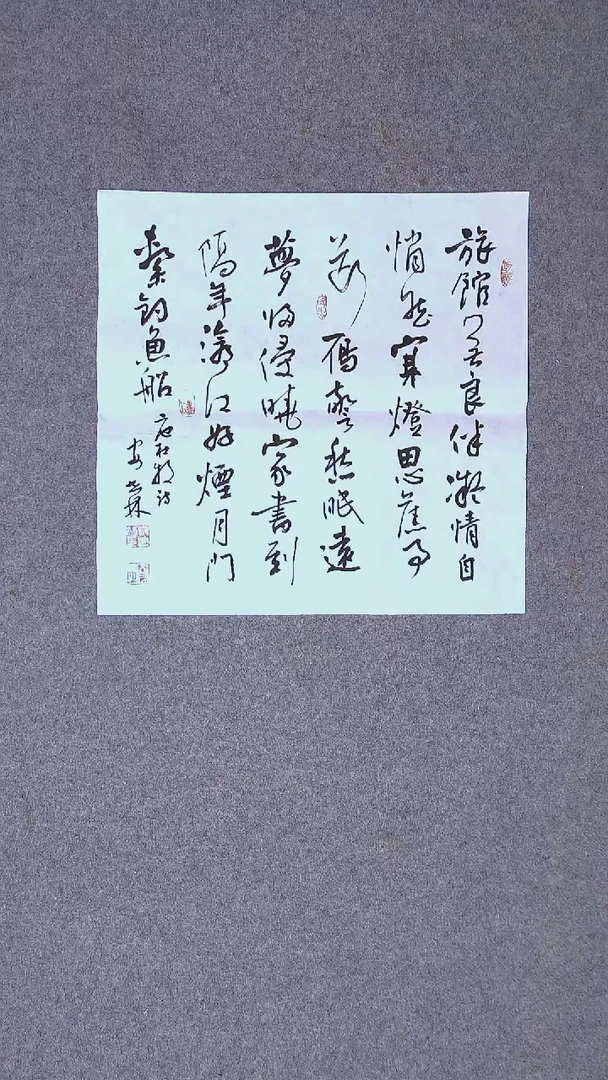 旅館無良伴凝情自
悄然寒燈思舊事
斷鴈警愁眠遠
夢歸侵曉家書到
隔年滄江好煙月門
繫釣魚船
杜牧詩